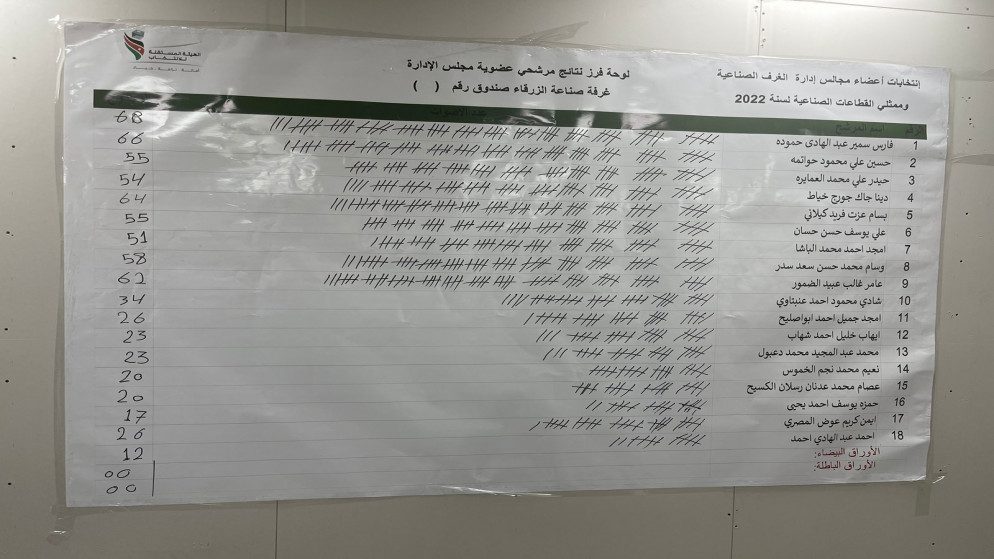 الهيئة المستقلة
للانتخاب
انتخابات أعضاء مجالس إدارة الغرف الصناعية
وممثلي القطاعات الصناعية لسنة 2022
لوحة فرز نتائج مرشحي عضوية مجلس الإدارة
غرفة صناعة الزرقاء صندوق رقم ( )
الرقم اسم المرشح عدد الاصوات
1 فارس سمير عبد الهادي حموده 68
2 حسين علي محمود حواتمه 66
3 حيدر علي محمد العمايره 55
4 دينا جاك جورج خياط 54
5 بسام عزت فريد كيلاني 64
6 علي يوسف حسن حسان 55
7 امجد احمد محمد الباشا 51
8 وسام محمد حسن سعد سدر 58
9 عامر غالب عبيد الضمور 62
10 شادي محمود احمد عنبتاوي 34
11 امجد جميل احمد ابواصليح 26
12 ايهاب خليل احمد شهاب 23
13 محمد عبد المجيد محمد دعبول 23
14 نعيم محمد نجم الخموس 20
15 عصام محمد عدنان رسلان الكسيح 20
16 حمزه يوسف احمد يحيى 17
17 ايمن كريم عوض المصري 26
18 احمد عبد الهادي احمد 12
الأوراق البيضاء: 00
الأوراق الباطلة: 00